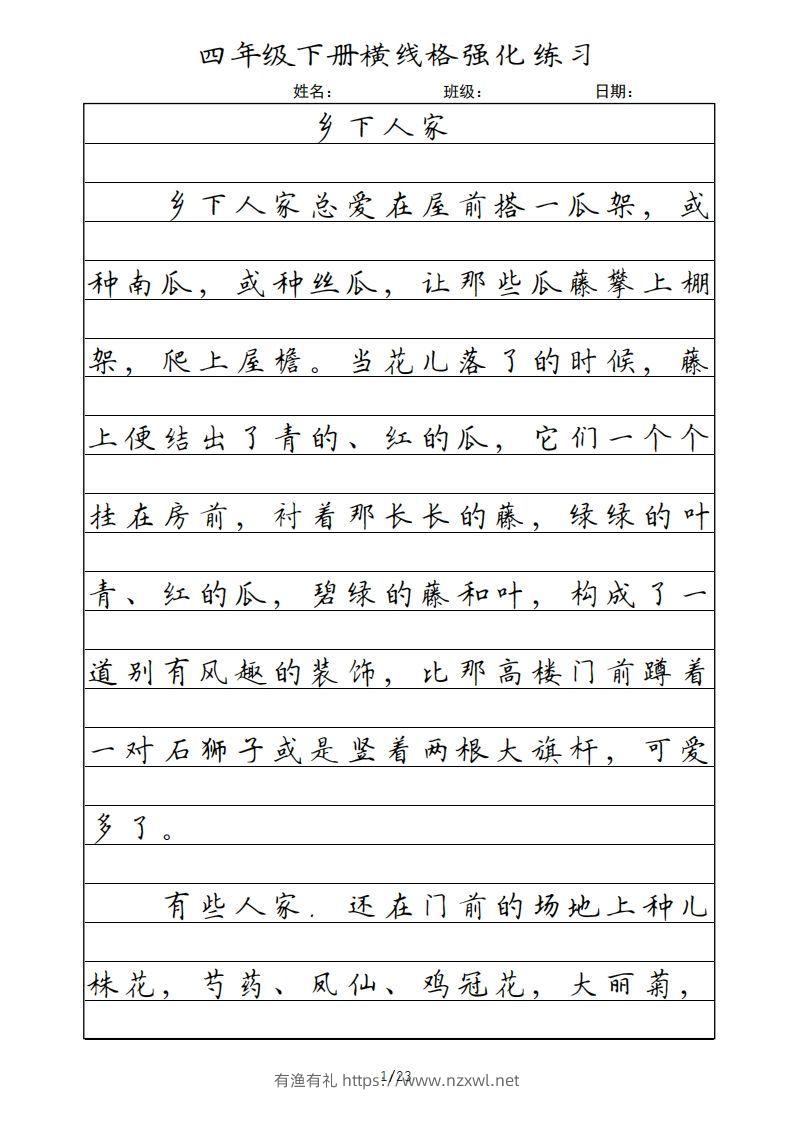 四年级下册横线格强化练习
姓名： 班级： 日期：
乡下人家
乡下人家总爱在屋前搭一瓜架，或
种南瓜，或种丝瓜，让那些瓜藤攀上棚
架，爬上屋檐。当花儿落了的时候，藤
上便结出了青的、红的瓜，它们一个个
挂在房前，衬着那长长的藤，绿绿的叶
青、红的瓜，碧绿的藤和叶，构成了一
道别有风趣的装饰，比那高楼门前蹲着
一对石狮子或是竖着两根大旗杆，可爱
多了。
有些人家．还在门前的场地上种儿
株花，芍药、凤仙、鸡冠花，大丽菊，
1/23
有渔有礼 https://www.nzxwl.net